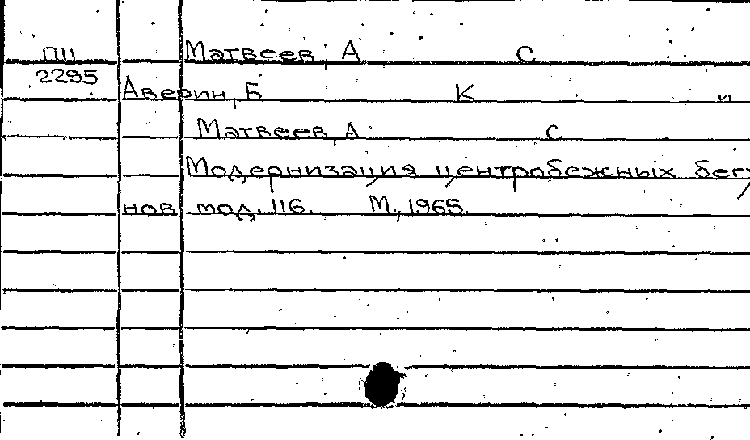 ПЩ Матвеев, А С
2295
Аверин, Б К и
Матвеев, А. С
Модернизация центробежных бегу
нов мод. 116. М., 1965.